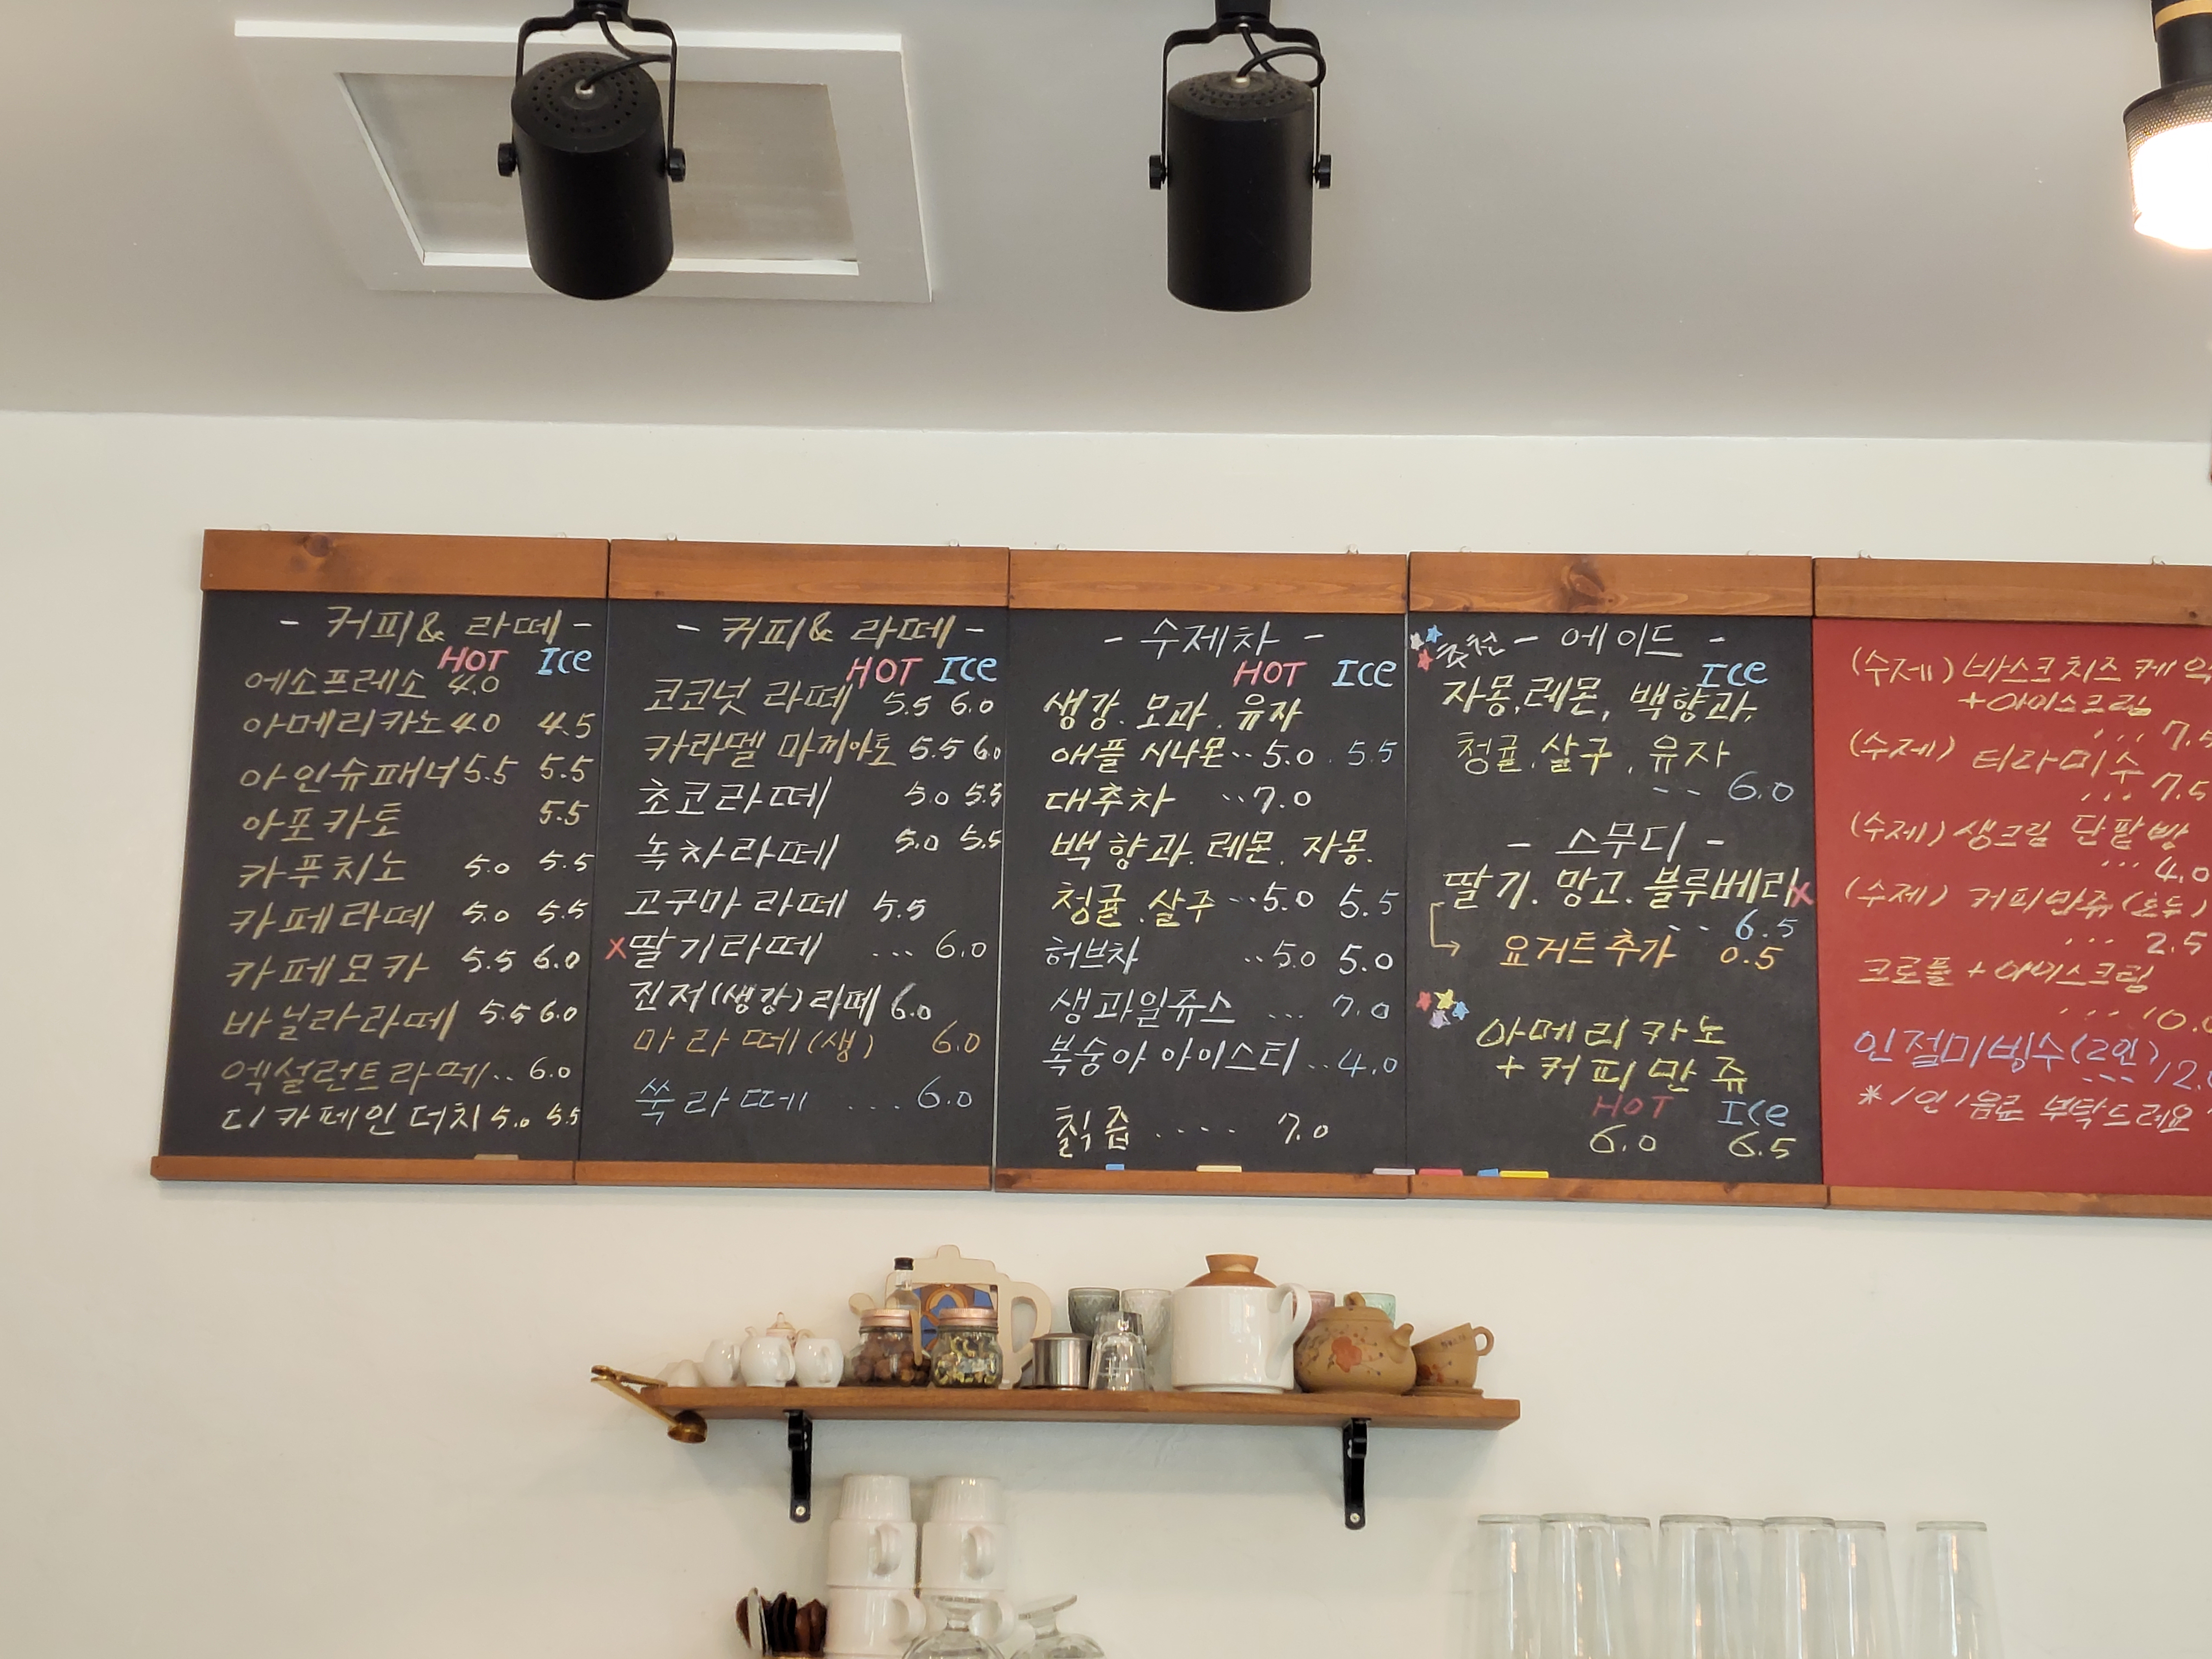 - 커피& 라떼 -
HOT ICe
에소프레소 4.0
아메리카노 4.0 4.5
아인슈패너 5.5 5.5
아포카토 5.5
카푸치노 5.0 5.5
카페라떼 5.0 5.5
카페모카 5.5 6.0
바닐라라떼 5.5 6.0
엑설런트라떼.. 6.0
디카페인더치 5.0 5.5
- 커피& 라떼 -
HOT ICe
코코넛 라떼 5.5 6.0
카라멜 마끼아토 5.5 6.0
초코라떼 5.0 5.5
녹차라떼 5.0 5.5
고구마 라떼 5.5
x딸기라떼 ... 6.0
진저(생강)라떼 6.0
마라떼(생) 6.0
쑥라떼 .... 6.0
- 수제차 -
HOT ICe
생강. 모과. 유자
애플 시나몬.. 5.0 . 5.5
대추차 ..7.0
백향과. 레몬. 자몽.
청귤.살구 ...5.0 5.5
허브차 ..5.0 5.0
생과일쥬스 ... 7.0
복숭아 아이스티..4.0
칡즙 .... 7.0
추천 - 에이드 -
ICe
자몽,레몬, 백향과,
청귤.살구 . 유자
--- 6.0
- 스무디 -
딸기. 망고. 블루베리x
-- 6.5
요거트추가 0.5
아메리카노
+커피만쥬
HOT ICe
6.0 6.5
(수제) 바스크치즈케익
+아이스크림
... 7.5
(수제) 티라미수
... 7.5
(수제) 생크림 단팥빵
... 4.0
(수제) 커피만쥬(호두)
... 2.5
크로플+아이스크림
.... 10.0
인절미빙수(2인)
--- 12.0
*1인 1음료 부탁드려요